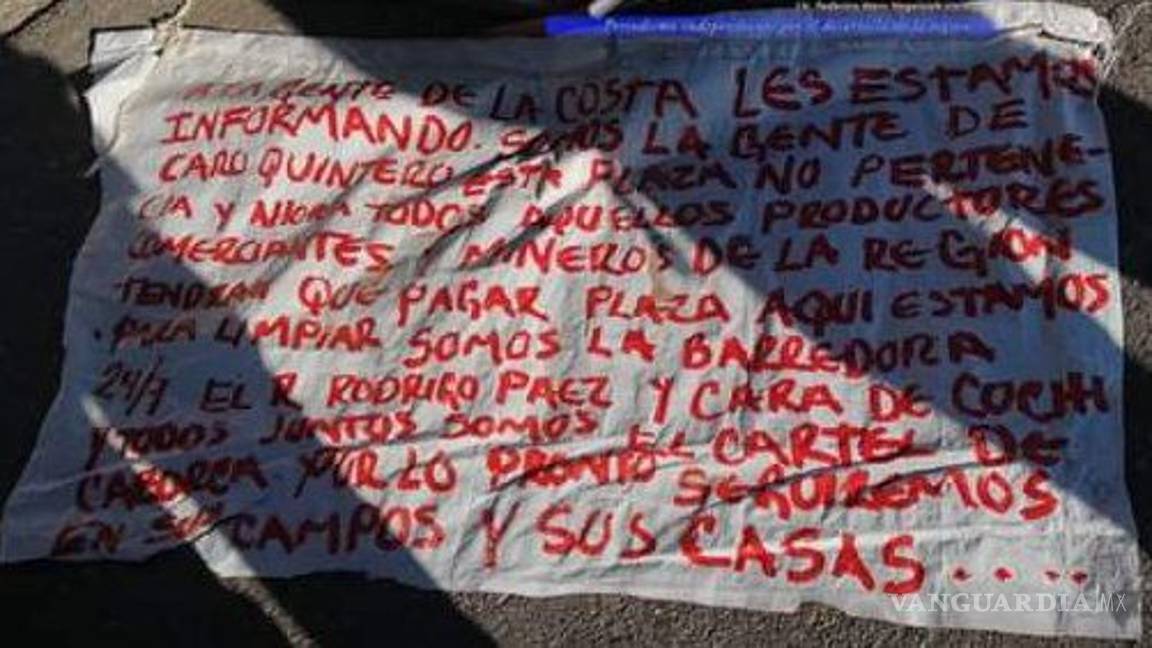 GENTE DE LA COSTA LES ESTAMOS
INFORMANDO. SOMOS LA GENTE DE
CARO QUINTERO ESTA PLAZA NO PERTENE-
CIA Y AHORA TODOS AQUELLOS PRODUCTORES
COMERCIANTES Y MINEROS DE LA REGION
TENDRAN QUE PAGAR PLAZA AQUI ESTAMOS
PARA LIMPIAR SOMOS LA BARREDORA
24/7 EL R RODRIGO PAEZ Y CARA DE COCHI
Y TODOS JUNTOS SOMOS EL CARTEL DE
CABORCA Y POR LO PRONTO SEGUIREMOS
EN SUS CAMPOS Y SUS CASAS....
VANGUARDIA|MX